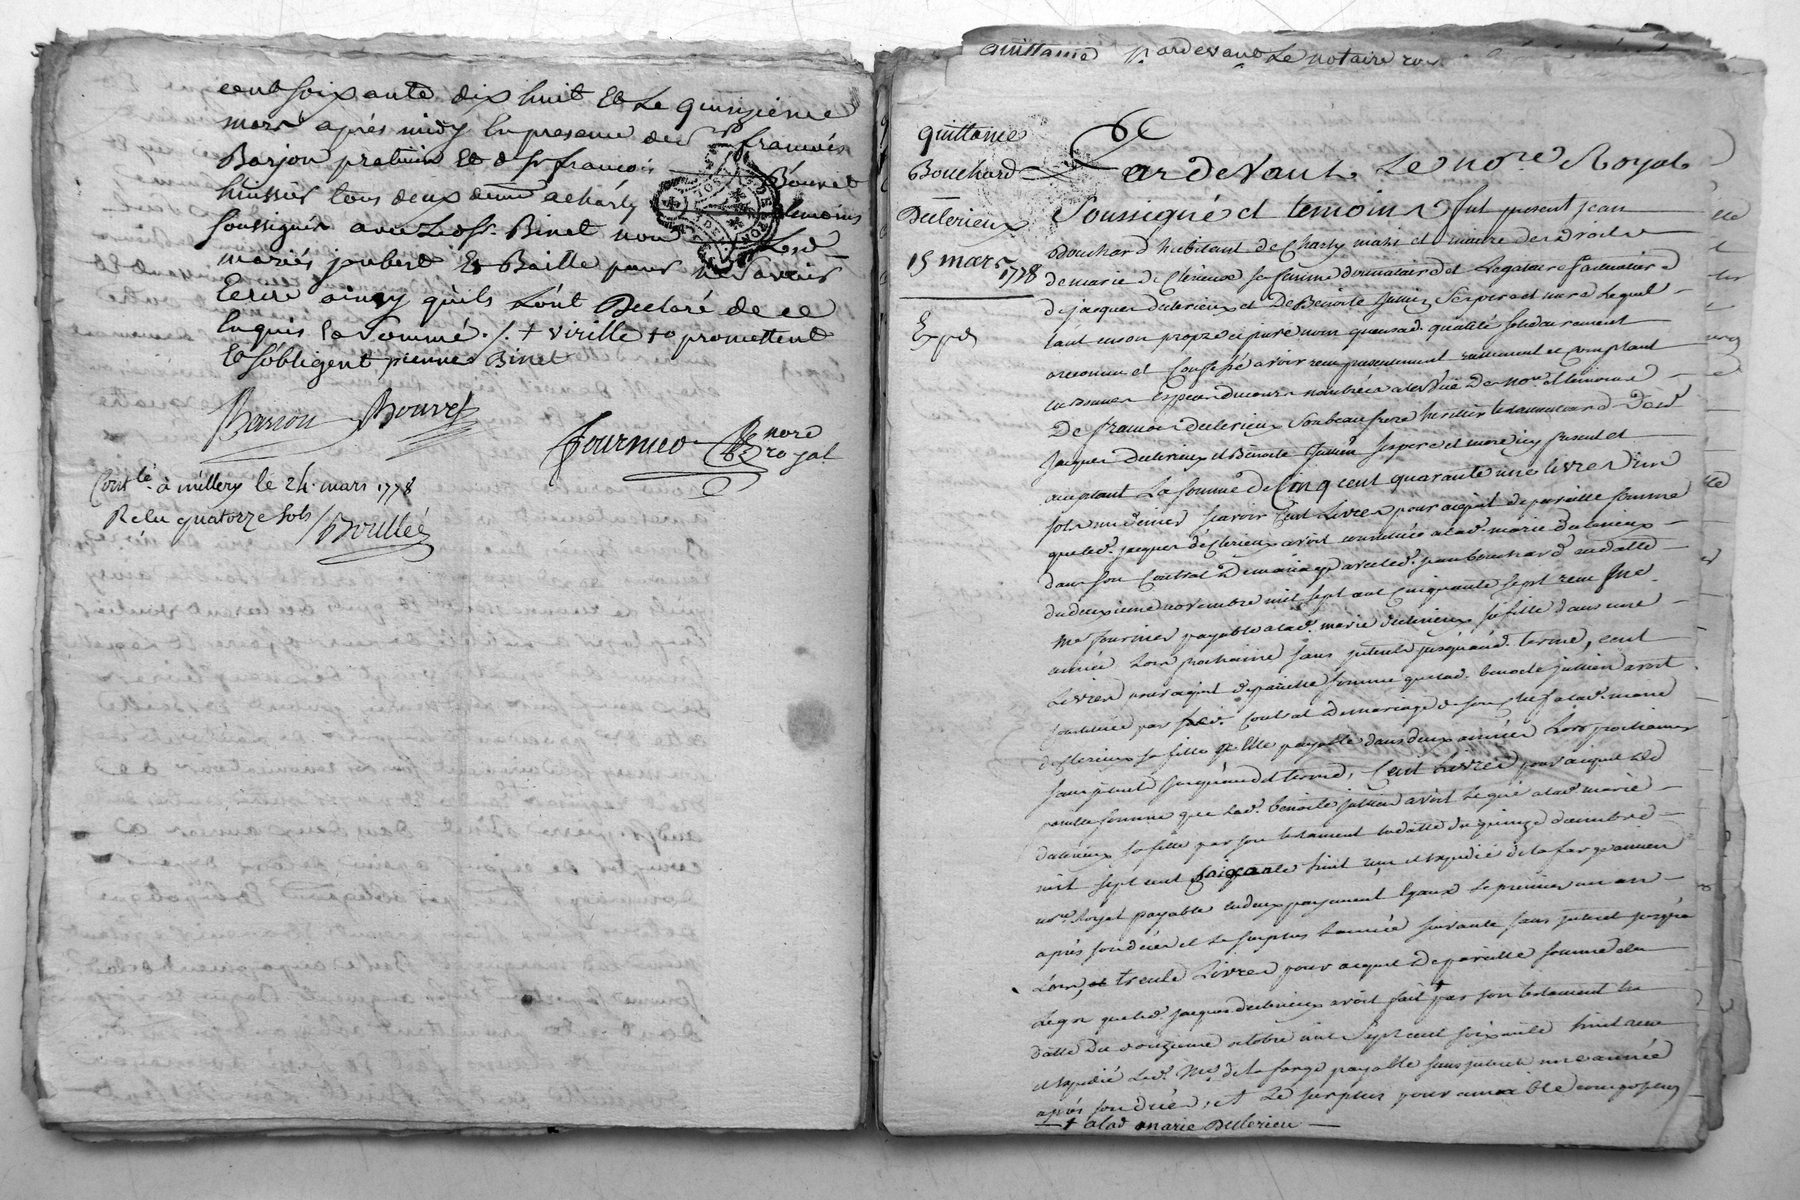 cent soixante dix huit Et Le quinzieme
mars après midy En presence de sr francois
Barjon praticien Et de sr francois Bouvet
huissier tous deux demt a charly temoins
soussignés avec Ledt sr Binet non Lesd
mariés joubert Et Baille pour ne savoir
Ecrire ainsy qu'ils L'ont Declaré de ce
Enquis la somme ./. + virille + o promettent
Et s'obligent pierre Binet
Barjon Bouvet
fournier nore
royal
Contlé à millery le 24 mars 1778
Reçu quatorze sols
quittance pardevant Le notaire roy
quittance
Bouchard
Duclerieux
15 mars 1778
Expd
Pardevant Le nore Royal
Soussigné et temoins fut present jean
Bouchard habitant de Charly mary et maitre des droits
de marie Duclerieux sa femme donnataire et Legataire
de jacques duclerieux et De Benoite jullien ses pere et mere Lequel
tant en son propre et privé nom qu'en sad. qualité solidairement
a reconnu et Confessé avoir reçu presentement reellement et Comptant
en bonnes Especes du cours nombrées a la Vüe De nore et temoins
De francois duclerieux son beau frere heritier testamentaire Desd
jacques duclerieux et Benoite jullien ses pere et mere icy present et
acceptant La somme de Cinq cent quarante une livres un
sols un denier scavoir Cent Livres pour acquit de pareille somme
que led. jacques duclerieux avoit constituée a lad. marie duclerieux
dans son Contrat De mariage avec led. jean bouchard en datte
du deuxieme novembre mil sept cent Cinquante sept reçu par
me fournier payable a lad. marie duclerieux sa fille dans une
année Lors prochaine sans interet jusqu'aud. terme, cent
Livres pour acquit de pareille somme que lad. benoite jullien avoit
constituée par led. Contrat De mariage de son chef a lad. marie
duclerieux sa fille payable dans deux années Lors prochaines
sans interet jusqu'audit terme, Cent Livres pour acquit De
pareille somme que Lad. benoite jullien avoit Legué a lad. marie
duclerieux sa fille par son testament en datte du quinze
mil sept cent soixante huit reçu et expedié
nore Royal payable en deux payements Egaux Le premier un an
après son décès et Le surplus L'année suivante sans interet jusqu'a
Lors, trente Livres pour acquit De pareille somme
Legs que led. jacques duclerieux avoit fait par son testament en
datte Du onzieme octobre mil Sept cent soixante huit reçu
et expedié Led. Me. de la farge payable sans interet une année
après son décès, et Le surplus pour
+ a lad marie Duclerieu